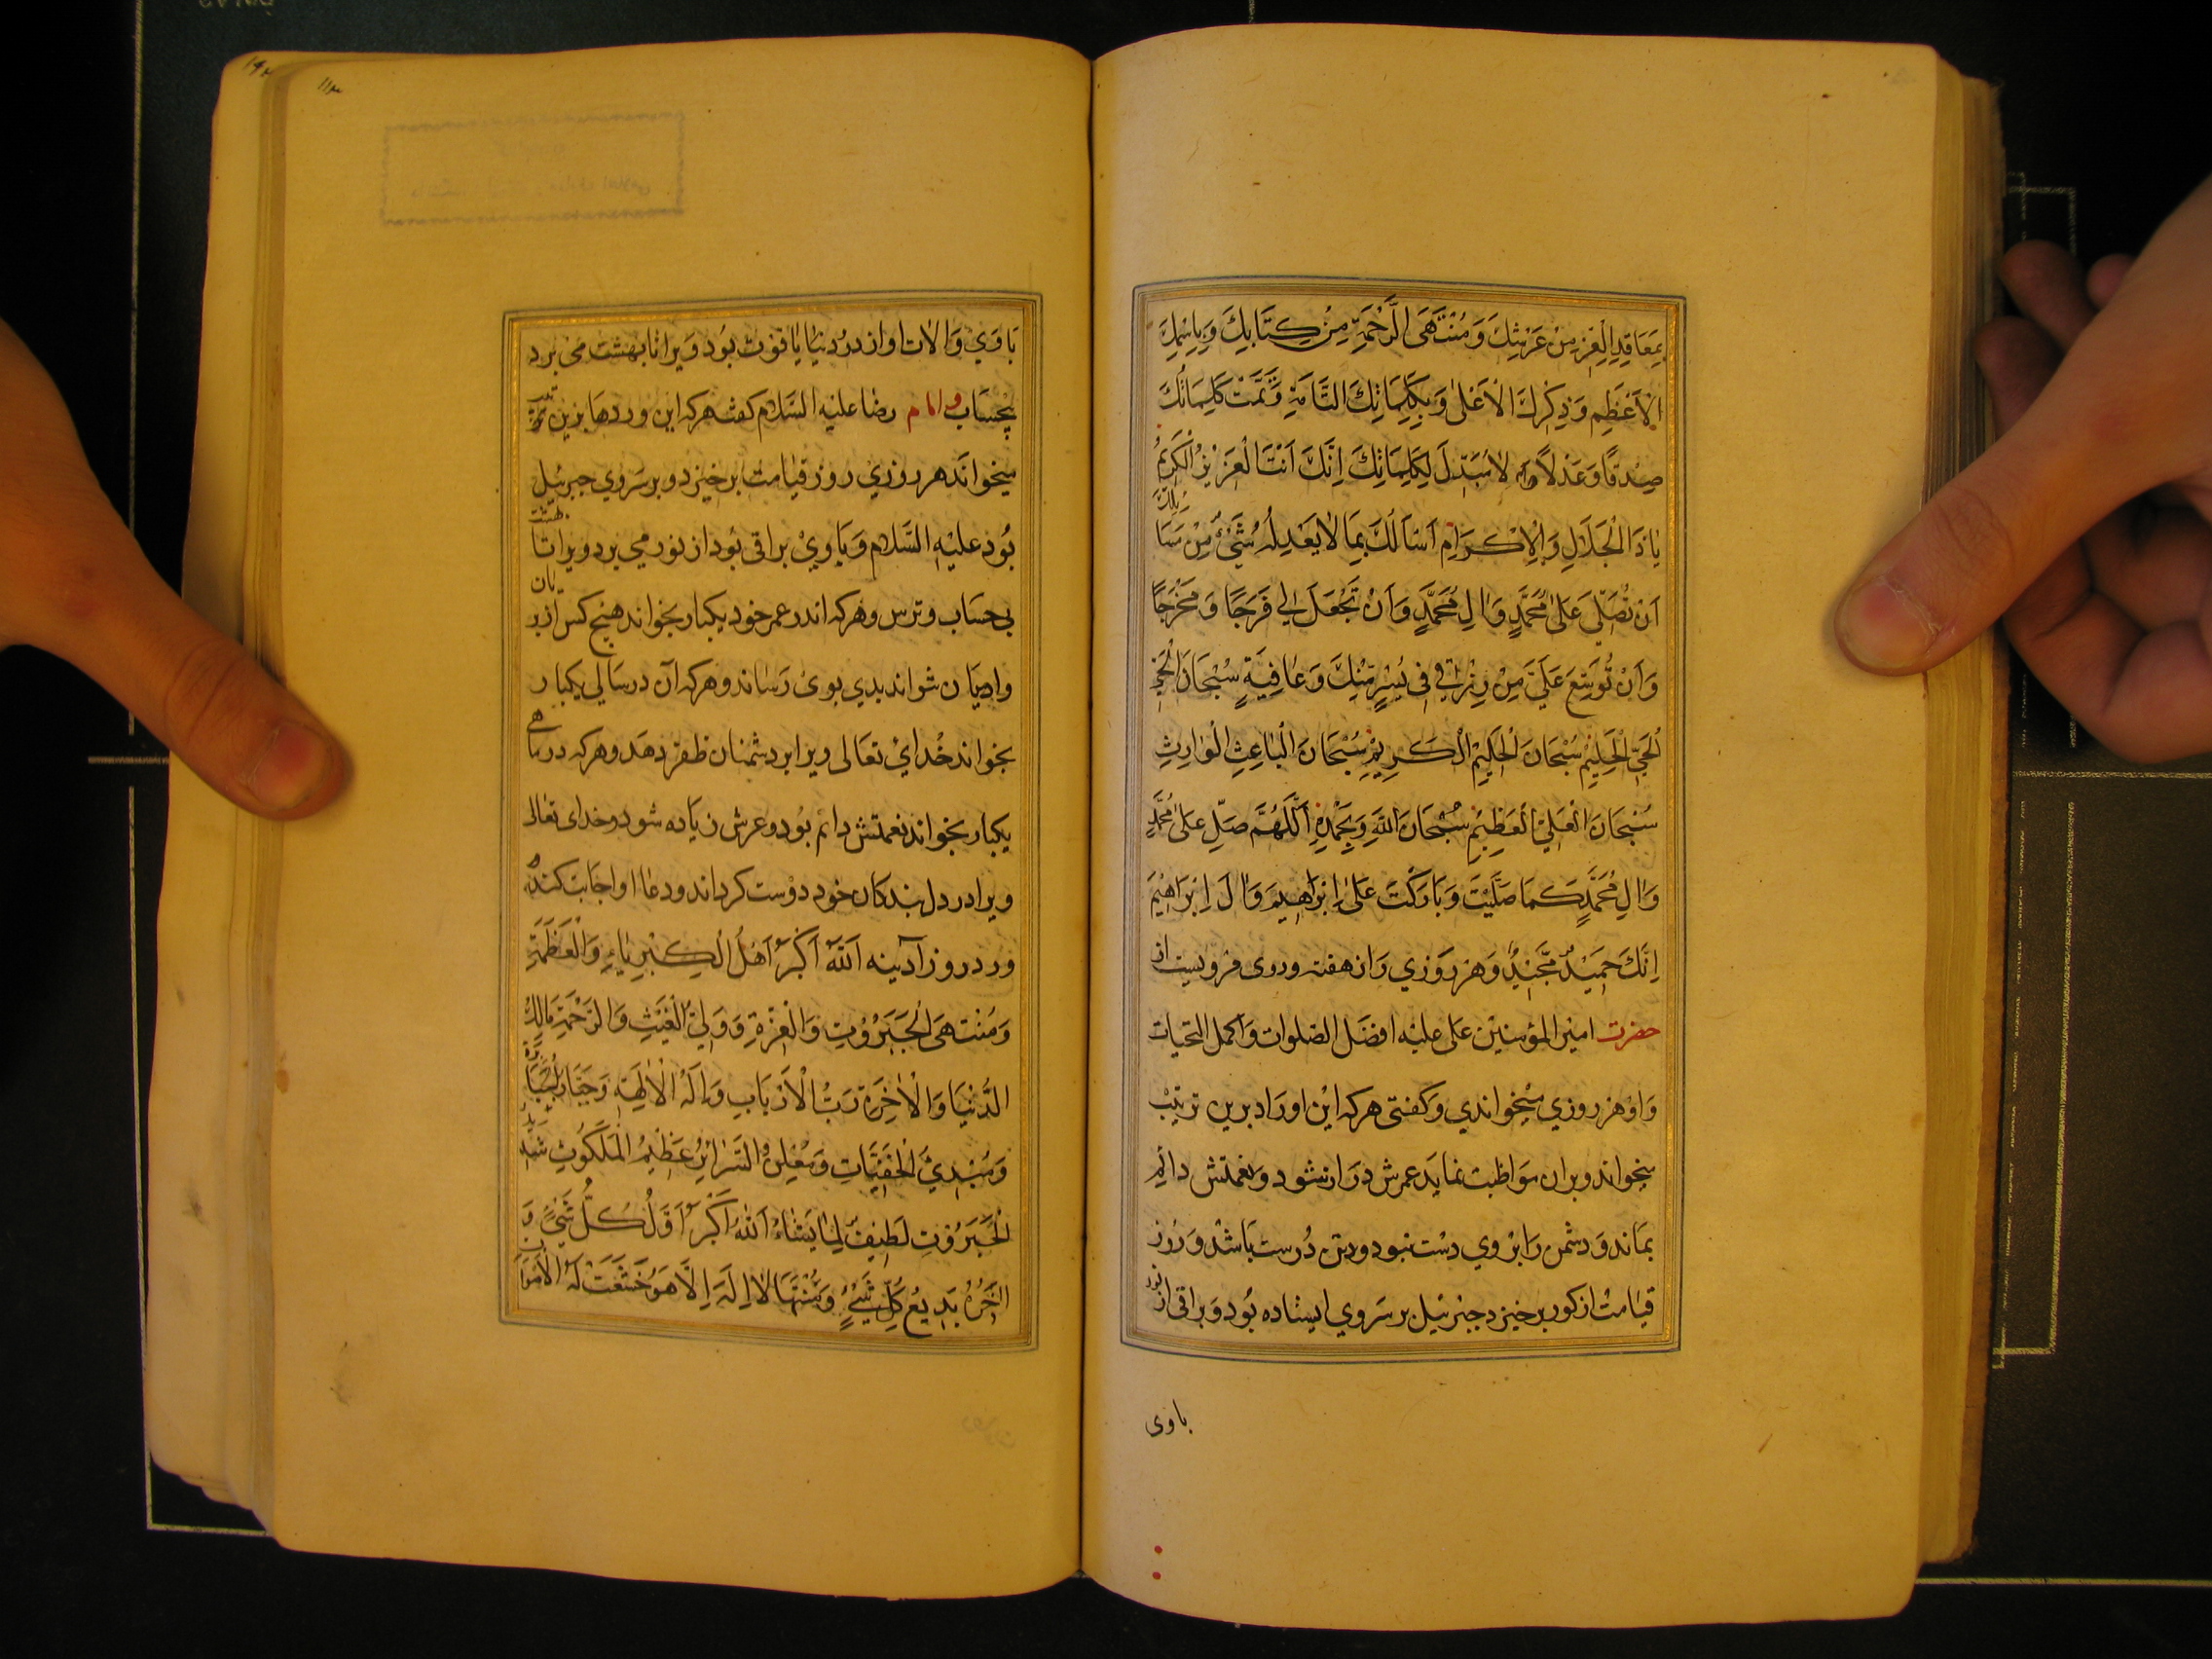 بِمَعَاقِدِ الْعِزِّ مِنْ عَرْشِكَ وَمُنْتَهَى الرَّحْمَةِ مِنْ كِتَابِكَ وَبِاسْمِكَ
الْأَعْظَمِ وَذِكْرِكَ الْأَعْلٰى وَبِكَلِمَاتِكَ التَّامَّةِ وَتَمَّتْ كَلِمَاتُكَ
صِدْقًا وَعَدْلًا لَا مُبَدِّلَ لِكَلِمَاتِكَ إِنَّكَ أَنْتَ الْعَزِيزُ الْكَرِيمُ
يَا ذَا الْجَلَالِ وَالْإِكْرَامِ أَسْأَلُكَ بِمَا لَا يَعْدِلُهُ شَيْءٌ مِنْ مَسَائِلِكَ
أَنْ تُصَلِّيَ عَلٰى مُحَمَّدٍ وَاٰلِ مُحَمَّدٍ وَأَنْ تَجْعَلَ لِي فَرَجًا وَمَخْرَجًا
وَأَنْ تُوَسِّعَ عَلَيَّ مِنْ رِزْقِي فِي يُسْرٍ مِنْكَ وَعَافِيَةٍ سُبْحَانَ الْحَيِّ
الْحَيِّ الْحَلِيمِ سُبْحَانَ الْحَلِيمِ الْكَرِيمِ سُبْحَانَ الْبَاعِثِ الْوَارِثِ
سُبْحَانَ الْعَلِيِّ الْعَظِيمِ سُبْحَانَ اللّٰهِ وَبِحَمْدِهِ اَللّٰهُمَّ صَلِّ عَلٰى مُحَمَّدٍ
وَاٰلِ مُحَمَّدٍ كَمَا صَلَّيْتَ وَبَارَكْتَ عَلٰى إِبْرَاهِيمَ وَاٰلَ إِبْرَاهِيمَ
إِنَّكَ حَمِيدٌ مَجِيدٌ وَهر روزي را از هفته وردى مرويست از
حضرت امير المؤمنين على عليه افضل الصلوات واكمل التحيات
واو هر روزي ميخواندي وكفتى هركه اين اوراد برين ترتيب
بخواند وبران مواظبت نمايد عمرش دراز شود ونعمتش دائم
بماند ودشمن را بر وي دست نبود ودينش درست باشد وروز
قيامت از كور برخيزد جبرئيل بر سر وي ايستاده بود وبراقى از نور
باوى
باوي والات او از در دنيا ياقوت بود ويرا تا بهشت مى برد
بى حساب وامام رضا عليه السلام كفت هركه اين وردها بزين ترتيب
ميخواند هر روزي روز قيامت برخيزد وبر سر وي جبرئيل
بود عليه السلام وباوي براقى بود از نور مى برد ويرا تا بهشت
بى حساب وترس وهركه اندر عمر خود يكبار بخواند هيچ كس از پريان
وادميان نتواند بدي بوى رساند وهركه آن در سالي يكبار
بخواند خداي تعالى ويرا بر دشمنان ظفر دهد وهركه در ماهى
يكبار بخواند نعمتش دائم بود وعمرش زياده شود وخداى تعالى
ويرا در دل بندكان خود دوست كرداند ودعا او اجابت كند
ورد روز آدينه اَللّٰهُ أَكْبَرُ أَهْلُ الْكِبْرِيَاءِ وَالْعَظَمَةِ
وَمُنْتَهَى الْجَبَرُوتِ وَالْعِزَّةِ وَوَلِيُّ الْغَيْثِ وَالرَّحْمَةِ مَالِكُ
الدُّنْيَا وَالْاٰخِرَةِ رَبُّ الْأَرْبَابِ وَإِلٰهُ الْاٰلِهَةِ وَجَبَّارُ الْجَبَابِرَةِ
وَمُبْدِئُ الْخَفِيَّاتِ وَمُعْلِنُ السَّرَائِرِ عَظِيمُ الْمَلَكُوتِ شَدِيدُ
الْجَبَرُوتِ لَطِيفٌ لِمَا يَشَاءُ اَللّٰهُ أَكْبَرُ أَوَّلُ كُلِّ شَيْءٍ وَ
اٰخِرُهُ بَدِيعُ كُلِّ شَيْءٍ وَمُنْتَهَا لَا إِلٰهَ إِلَّا هُوَ خَشَعَتْ لَهُ الْأَصْوَاتُ